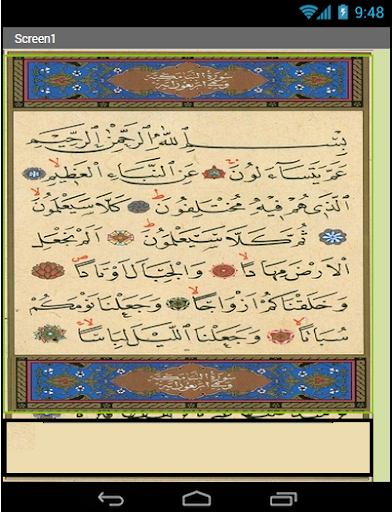 9:48
Screen1
بِسْمِ اللهِ الرَّحْمٰنِ الرَّحِيمِ
عَمَّ يَتَسَاءَلُونَ عَنِ النَّبَاِ الْعَظِيمِ
الَّذِي هُمْ فِيهِ مُخْتَلِفُونَ كَلَّا سَيَعْلَمُونَ
ثُمَّ كَلَّا سَيَعْلَمُونَ اَلَمْ نَجْعَلِ
الْاَرْضَ مِهَادًا وَالْجِبَالَ اَوْتَادًا
وَخَلَقْنَاكُمْ اَزْوَاجًا وَجَعَلْنَا نَوْمَكُمْ
سُبَاتًا وَجَعَلْنَا اللَّيْلَ لِبَاسًا